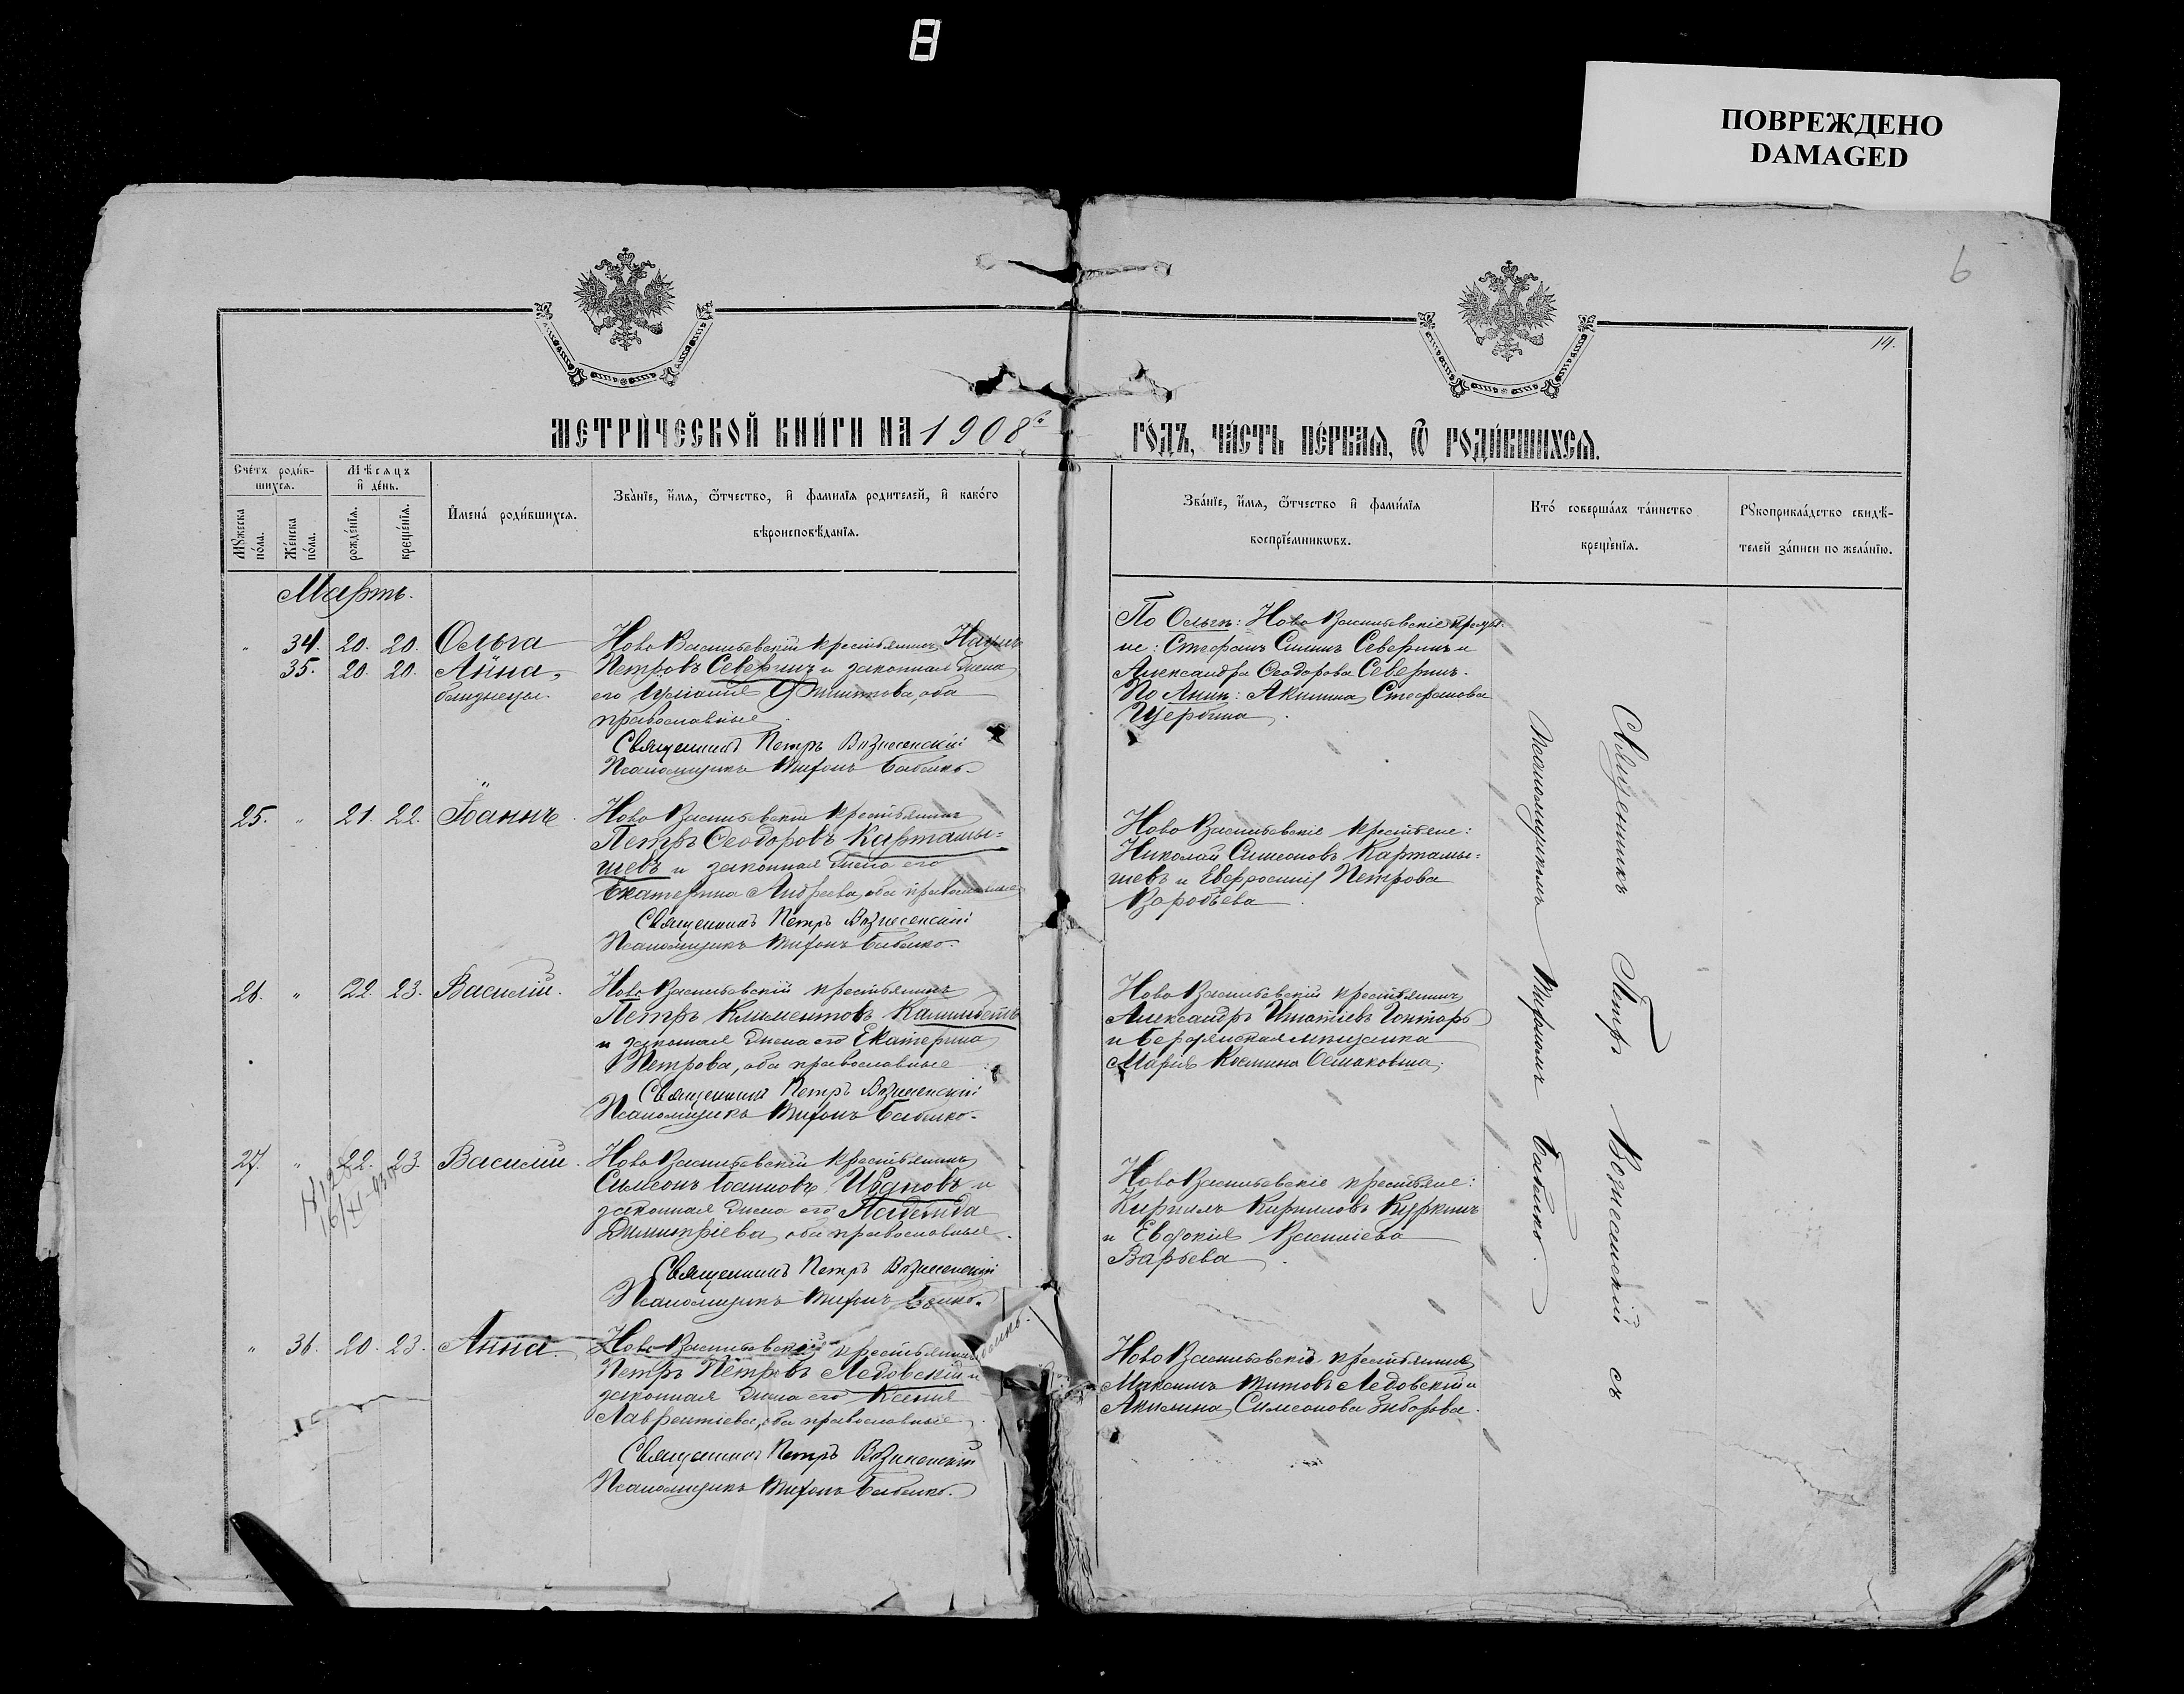 8
ПОВРЕЖДЕНО
DAMAGED
6
14.
МЕТРИ́ЧЕСКОЙ КНИ́ГИ НА 1908й
ГО́ДЪ, ЧА́СТЬ ПЕ́РВАЯ, Ѿ РОДИ́ВШИХСЯ.
Сче́тъ роди́в-
шихся.
Мѣсяцъ
и҆ де́нь.
Мꙋ́жеска
по́ла.
Же́нска
по́ла.
рожде́нїѧ.
креще́нїѧ.
И҆мена́ роди́вшихся.
Зва́нїе, и҆́мѧ, ѻ҆́тчество, и҆ фамилїѧ родителей, и҆ како́го
вѣроисповѣ́данїѧ.
Зва́нїе, и҆́мѧ, ѻ҆́тчество и҆ фами́лїѧ
воспрїе́мникѡвъ.
Кто́ соверша́лъ та́инство
креще́нїѧ.
Рꙋкоприкла́дство свидѣ́-
телей за́писи по жела́нїю.
Мартъ.
" 34. 20. 20. Ольга
35. 20. 20. Анна,
близнецы.
Ново Васильевскій крестьянинъ Наумъ
Петровъ Северинъ и законная жена
его, оба
православные.
Священникъ Петръ Вознесенскій
Псаломщикъ Тихонъ Бабенко.
По Ольгѣ: Ново Васильевскіе крестья-
не: Стефанъ Северинъ и
Александра Ѳеодорова Северинъ.
По Аннѣ: Акилина Стефанова
Щербина.
25. " 21. 22. Іоаннъ.
Ново Васильевскій крестьянинъ
Петръ Ѳеодоровъ Картамы-
шевъ и законная жена его
Екатерина Андреева, оба православные
Священникъ Петръ Вознесенскій
Псаломщикъ Тихонъ Бабенко.
Ново Васильевскіе крестьяне:
Николай Симеоновъ Картамы-
шевъ и Евфросинія Петрова
Воробьева.
26. " 22. 23. Василій.
Ново Васильевскій крестьянинъ
Петръ Климентовъ
и законная жена его Екатерина
Петрова, оба православные
Священникъ Петръ Вознесенскій
Псаломщикъ Тихонъ Бабенко.
Ново Васильевскій крестьянинъ
Александръ Игнатіевъ Гонтарь
и Бердянская мѣщанка
Марія Космина
27. " 22. 23. Василій.
16/XI-93
Ново Васильевскій крестьянинъ
Симеонъ Іоанновъ Ивановъ и
законная жена его Надежда
Димитріева, оба православные.
Священникъ Петръ Вознесенскій
Псаломщикъ Тихонъ Бабенко.
Ново Васильевскіе крестьяне:
Кириллъ Кирилловъ Куркинъ
и Евдокія Василіева
Варьева.
" 36. 20. 23. Анна.
Ново Васильевскій крестьянинъ
Петръ Петровъ Ледовскій и
законная жена его Ксенія
Лаврентіева, оба православные.
Священникъ Петръ Вознесенскій
Псаломщикъ Тихонъ Бабенко.
Ново Васильевскіе крестьяне
Максимъ Титовъ Ледовскій и
Акилина Симеонова Зиборова.
Священникъ Петръ Вознесенскій съ
псаломщикомъ Тихономъ Бабенко.